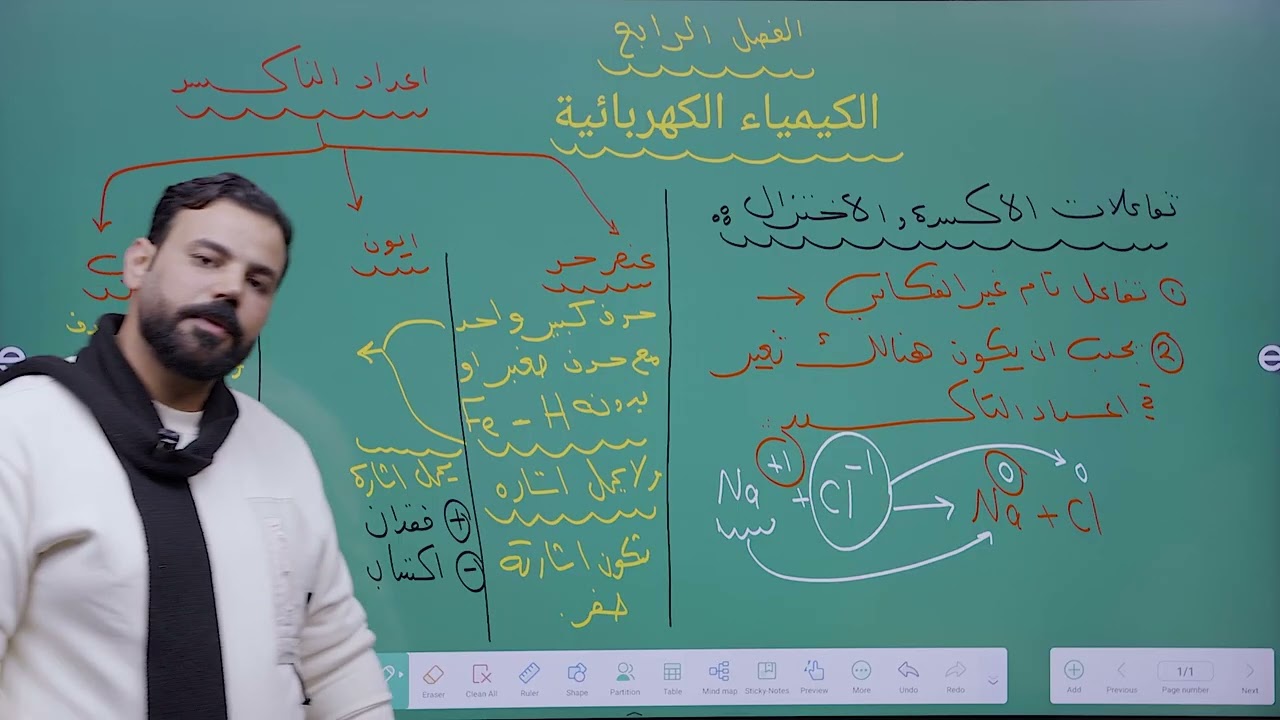 الفصل الرابع
الكيمياء الكهربائية
تفاعلات الاكسدة والاختزال
① تفاعل تام غير انفكاسي →
② يجب ان يكون هنالك تغير
في اعداد التاكسد
Na +1 + Cl -1 → Na 0 + Cl 0
اعداد التاكسد
عنصر حر
حرف كبير واحد
مع حرف صغير او
بدونه Fe - H
ولا يحمل اشاره
تكون اشارته
صفر.
ايون
يحمل اشارة
⊕ فقدان
⊖ اكتساب
Eraser
Clean All
Ruler
Shape
Partition
Table
Mind map
Sticky Notes
Preview
More
Undo
Redo
Add
Previous
1/1
Page number
Next